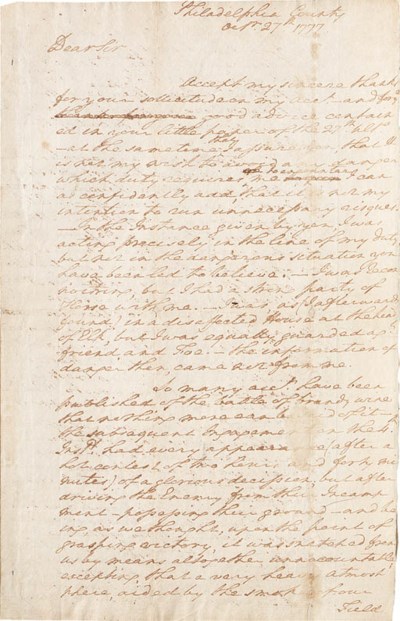 Philadelphia County
Octr 27th 1777
Dear Sir
Accept my sincere thanks
for your sollicitude on my acct and for yr
good advice contain
ed in your little paper of the 27th Ulto
- at the same time I assure you, that it
is not my wish to avoid any danger
which duty requires me to encounter, I can
as confidently add, that it is not my
intention to run unnecessary risques.
- In the Instance given by you, I was
acting precisely in the line of my duty,
but not in the dangerous situation you
have been led to believe. - I was recon
noitring, but I had a strong party of
Horse with me. - I was, as I afterwards
found, in a disaffected House at the head
of Elk, but I was equally guarded agt
friend, and Foe. - the information of
danger then, came not from me.
So many accts have been
published of the battle of brandy wine
that nothing more can be said of it -
the subsequent Engagement on the 4th
Instt had every appearance (after a
hot contest of two hours and forty mi
nutes) of a glorious decission, but after
driving the Enemy from their Incamp
ment - possessing their ground - and be
ing, as we thought, upon the point of
grasping victory, it was snatched from
us by means altogether unaccountable
excepting that a very heavy atmos
phere, aided by the smoke of our
Field